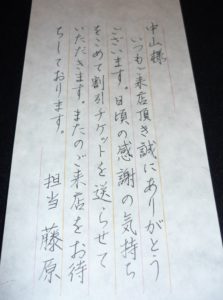 中山様
いつもご来店頂き誠にありがとう
ございます。日頃の感謝の気持ち
をこめて割引チケットを送らせて
いただきます。またのご来店をお待
ちしております。
担当 藤原